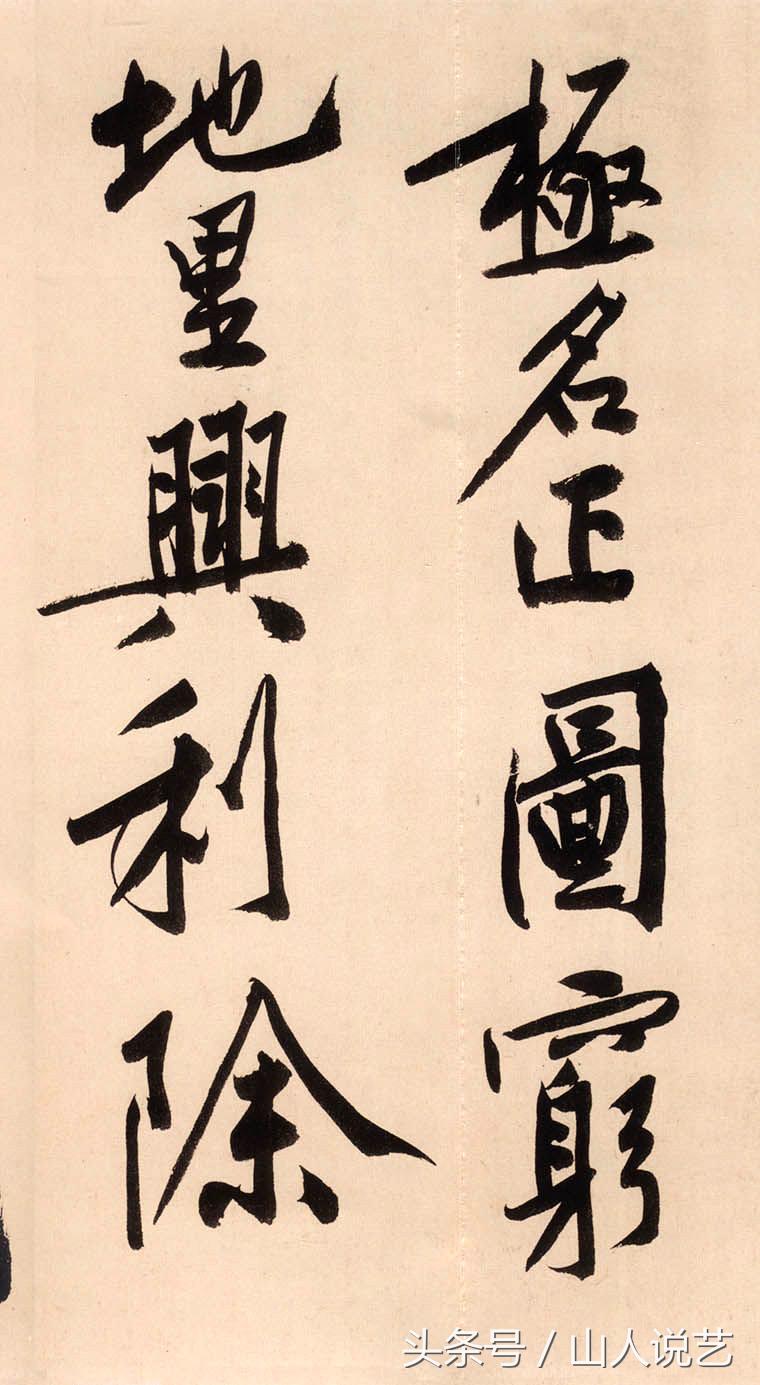 極名正圖窮
地里興利除
头条号 / 山人说艺